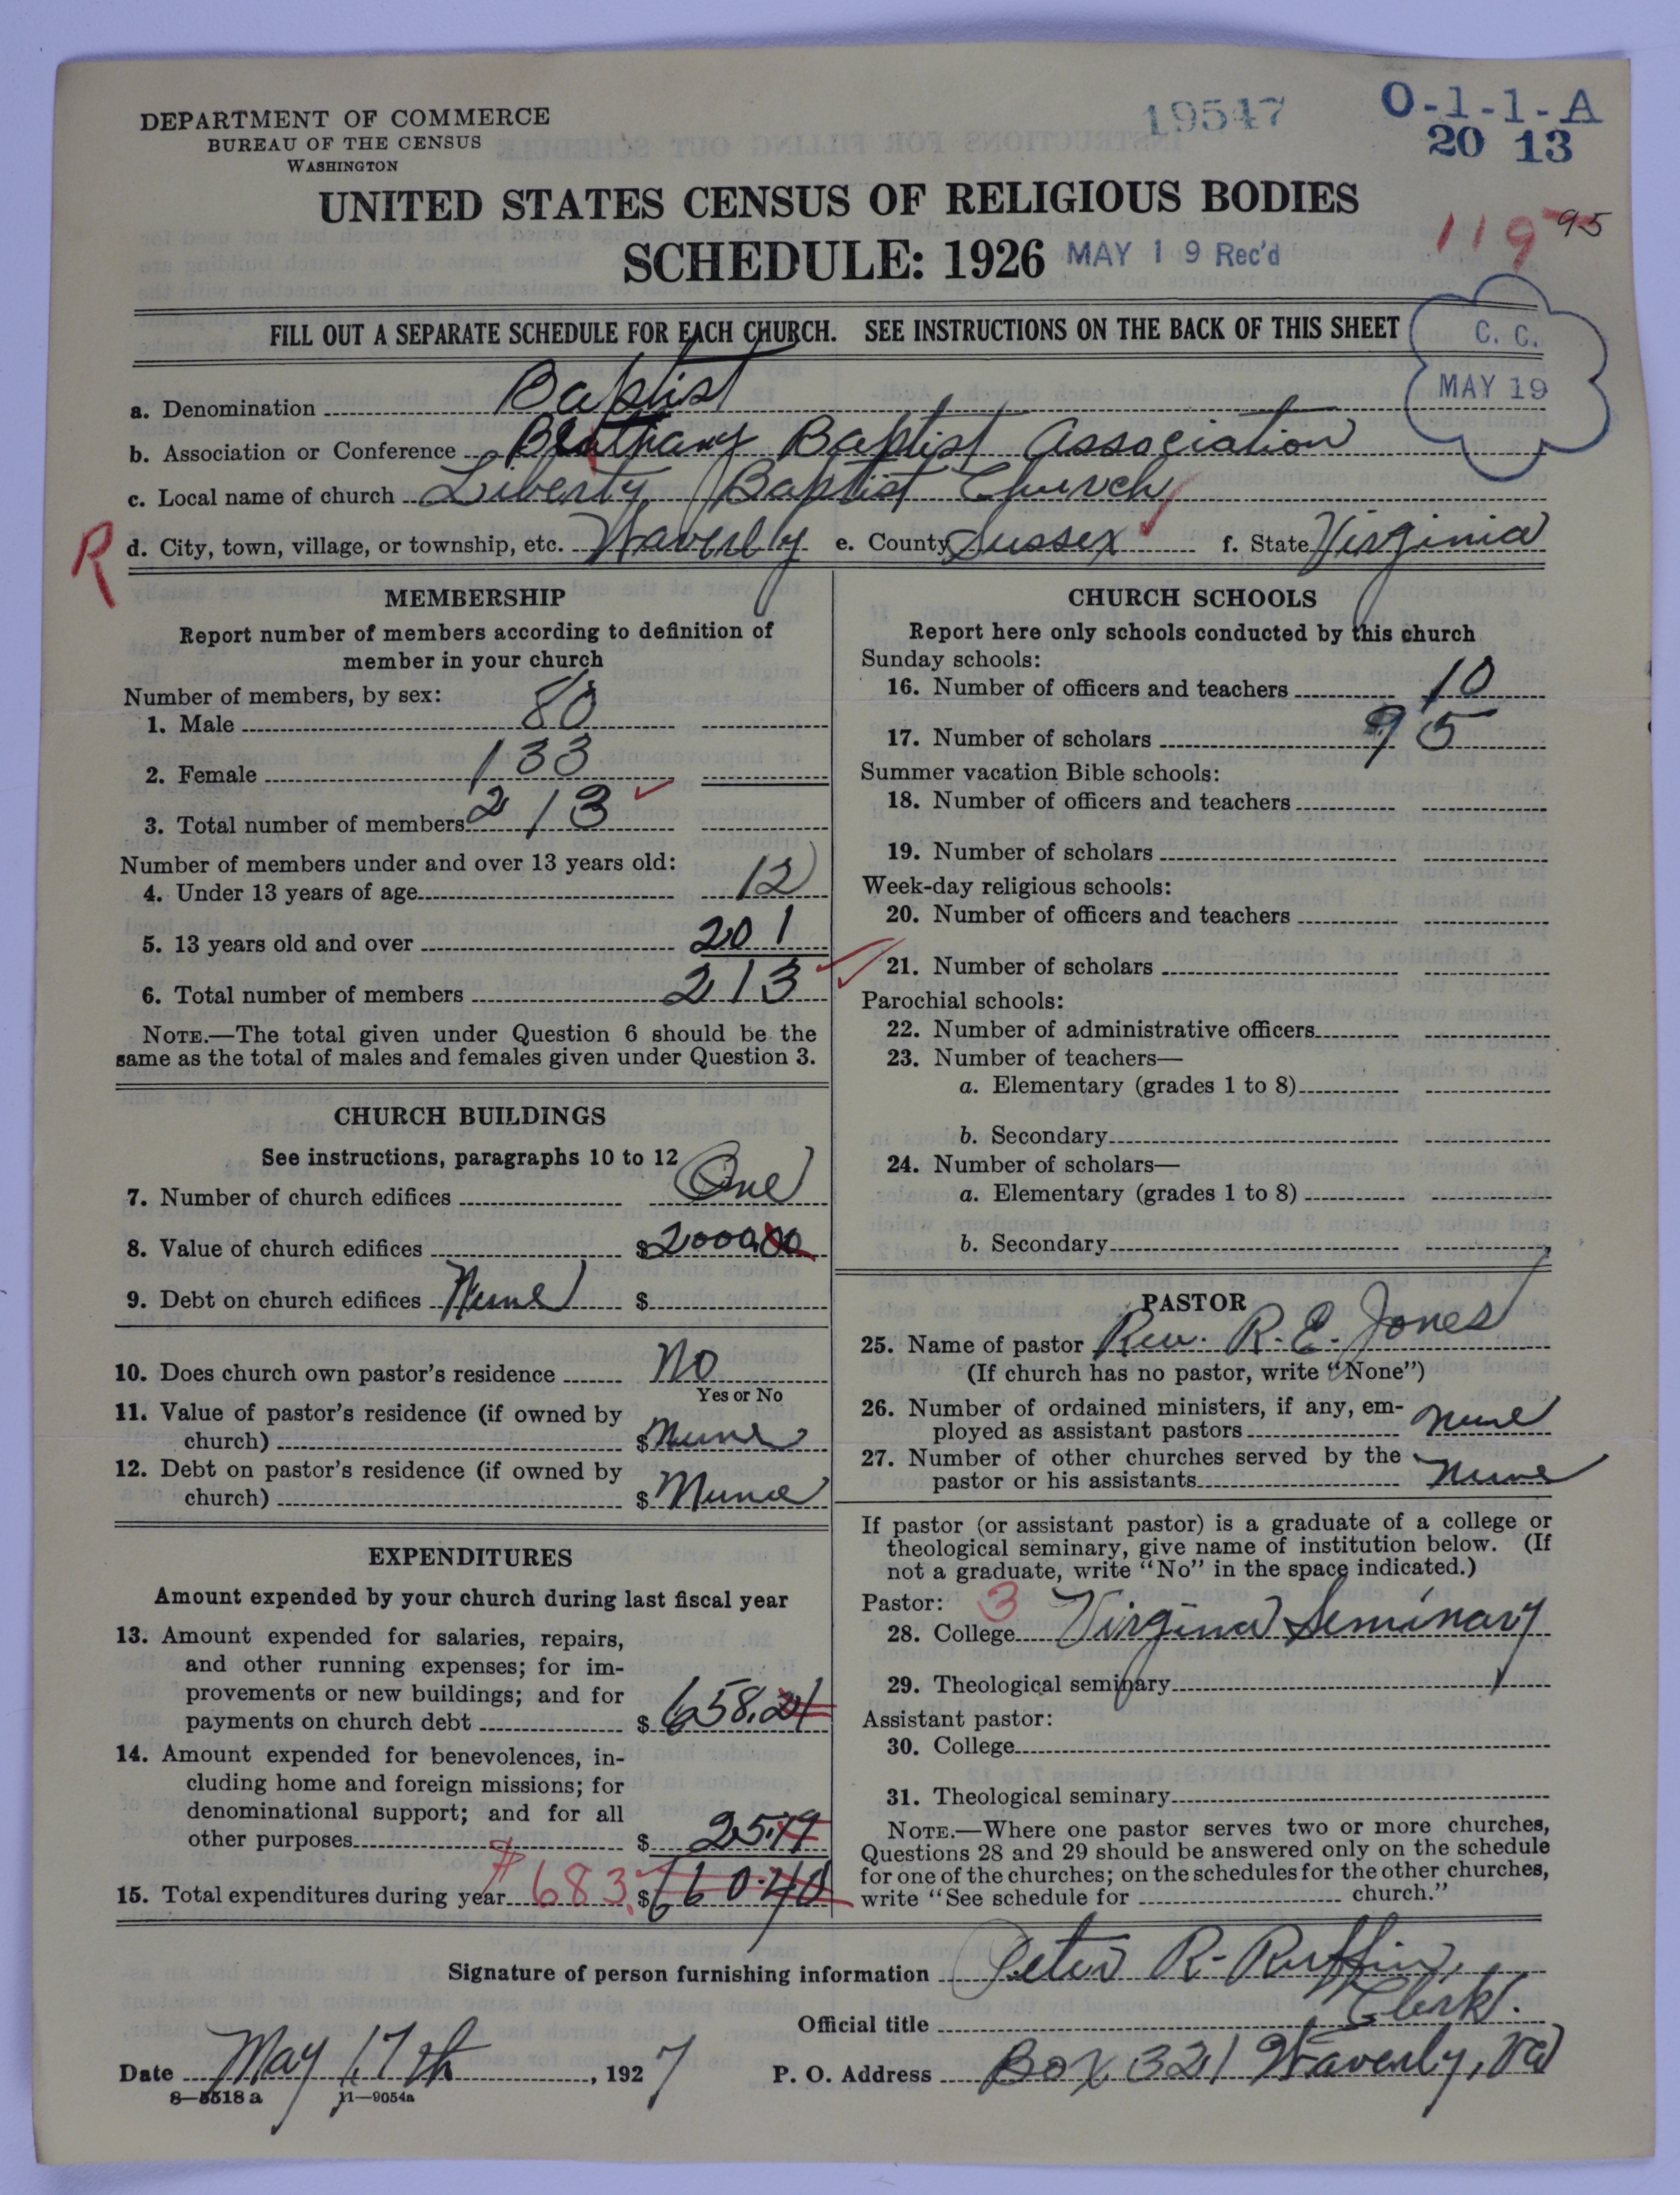 DEPARTMENT OF COMMERCE
BUREAU OF THE CENSUS
WASHINGTON
19547
O-1-1-A
20 13
UNITED STATES CENSUS OF RELIGIOUS BODIES
SCHEDULE: 1926 MAY 19 Rec'd
119 95
FILL OUT A SEPARATE SCHEDULE FOR EACH CHURCH. SEE INSTRUCTIONS ON THE BACK OF THIS SHEET
C. C.
MAY 19
a. Denomination Baptist
b. Association or Conference Bethany Baptist Association
c. Local name of church Liberty Baptist Church
R
d. City, town, village, or township, etc. Waverly e. County Sussex f. State Virginia
MEMBERSHIP
Report number of members according to definition of
member in your church
Number of members, by sex:
1. Male 80
2. Female 133
3. Total number of members 213
Number of members under and over 13 years old:
4. Under 13 years of age 12
5. 13 years old and over 201
6. Total number of members 213
NOTE.—The total given under Question 6 should be the
same as the total of males and females given under Question 3.
CHURCH BUILDINGS
See instructions, paragraphs 10 to 12
7. Number of church edifices One
8. Value of church edifices $2000.00
9. Debt on church edifices None $
10. Does church own pastor's residence No
Yes or No
11. Value of pastor's residence (if owned by
church) $ None
12. Debt on pastor's residence (if owned by
church) $ None
EXPENDITURES
Amount expended by your church during last fiscal year
13. Amount expended for salaries, repairs,
and other running expenses; for im-
provements or new buildings; and for
payments on church debt $ 658.21
14. Amount expended for benevolences, in-
cluding home and foreign missions; for
denominational support; and for all
other purposes $ 25.19
15. Total expenditures during year $683. $660.40
CHURCH SCHOOLS
Report here only schools conducted by this church
Sunday schools:
16. Number of officers and teachers 10
17. Number of scholars 95
Summer vacation Bible schools:
18. Number of officers and teachers
19. Number of scholars
Week-day religious schools:
20. Number of officers and teachers
21. Number of scholars
Parochial schools:
22. Number of administrative officers
23. Number of teachers—
a. Elementary (grades 1 to 8)
b. Secondary
24. Number of scholars—
a. Elementary (grades 1 to 8)
b. Secondary
PASTOR
25. Name of pastor Rev. R. E. Jones
(If church has no pastor, write "None")
26. Number of ordained ministers, if any, em-
ployed as assistant pastors None
27. Number of other churches served by the
pastor or his assistants None
If pastor (or assistant pastor) is a graduate of a college or
theological seminary, give name of institution below. (If
not a graduate, write "No" in the space indicated.)
Pastor: 3
28. College Virginia Seminary
29. Theological seminary
Assistant pastor:
30. College
31. Theological seminary
NOTE.—Where one pastor serves two or more churches,
Questions 28 and 29 should be answered only on the schedule
for one of the churches; on the schedules for the other churches,
write "See schedule for church."
Signature of person furnishing information Peter R. Ruffin,
Official title Clerk.
Date May 17th, 1927 P. O. Address Box 321 Waverly, Va
8—5518 a 11—9054a